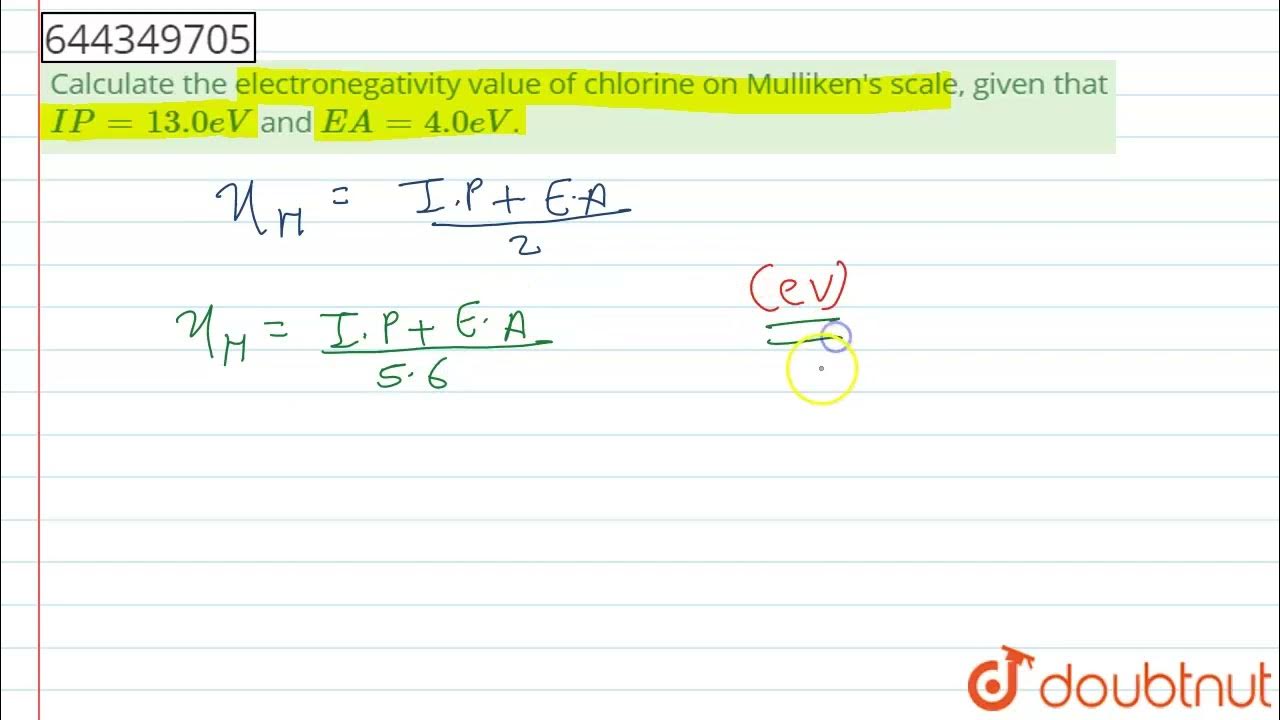 644349705
Calculate the electronegativity value of chlorine on Mulliken's scale, given that
IP = 13.0eV and EA = 4.0eV.
χ_M = I.P + E.A / 2
(eV)
χ_M = I.P + E.A / 5.6
doubtnut